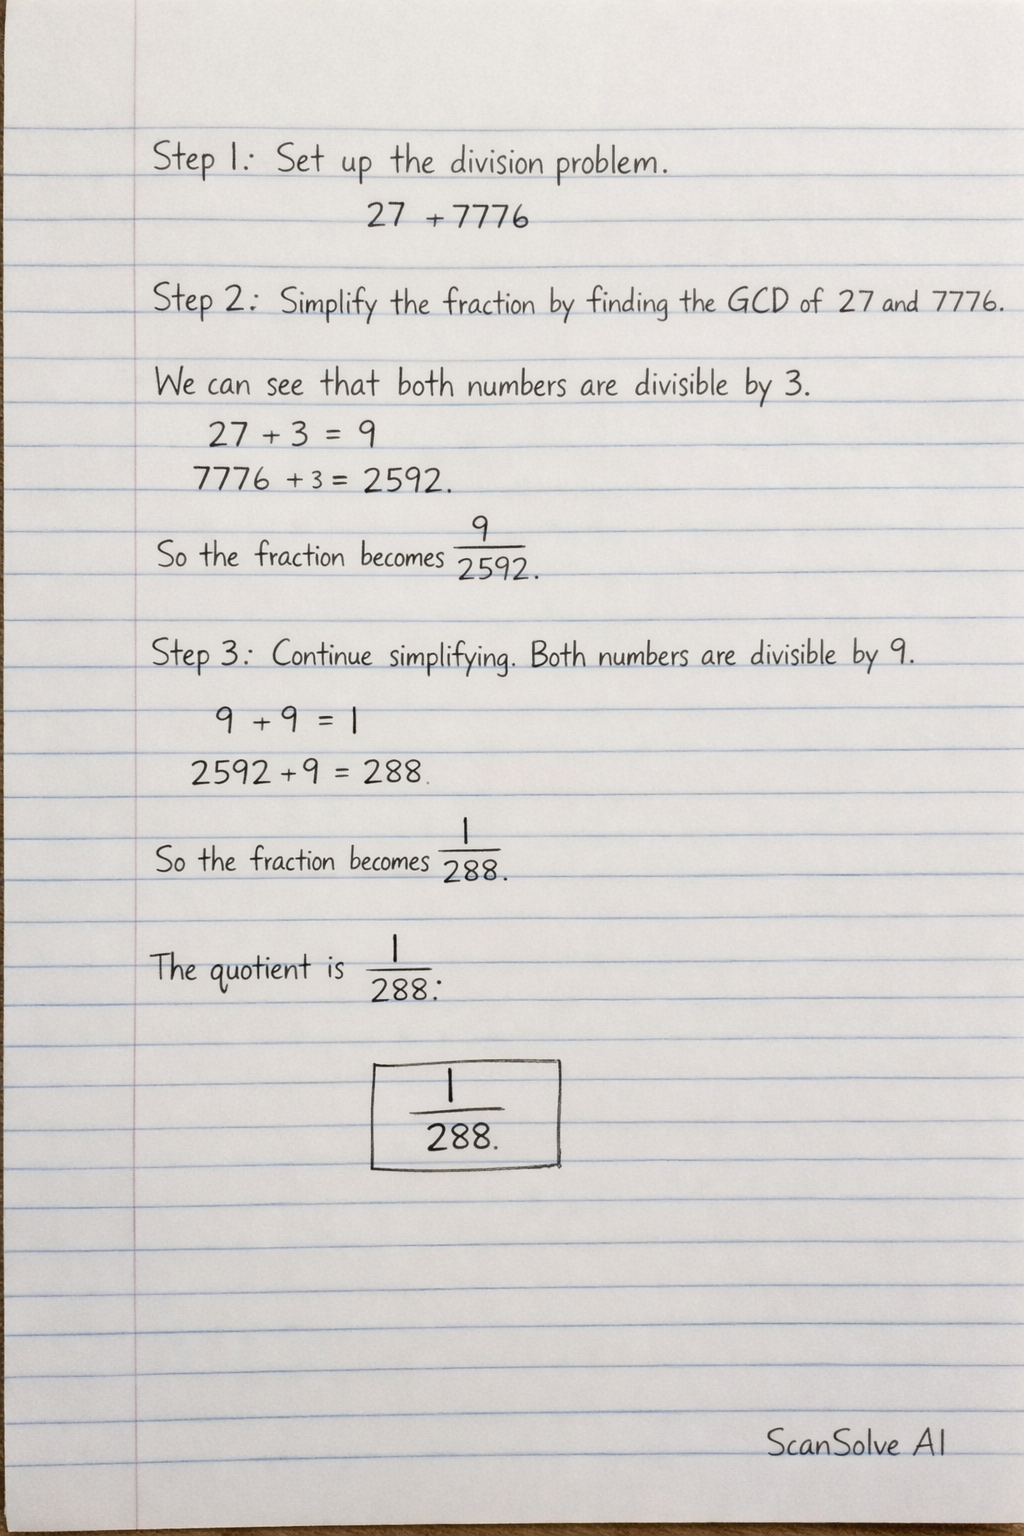 Step 1: Set up the division problem.
27 + 7776
Step 2: Simplify the fraction by finding the GCD of 27 and 7776.
We can see that both numbers are divisible by 3.
27 + 3 = 9
7776 + 3 = 2592.
So the fraction becomes 9/2592.
Step 3: Continue simplifying. Both numbers are divisible by 9.
9 + 9 = 1
2592 + 9 = 288.
So the fraction becomes 1/288.
The quotient is 1/288:
1/288.
ScanSolve AI